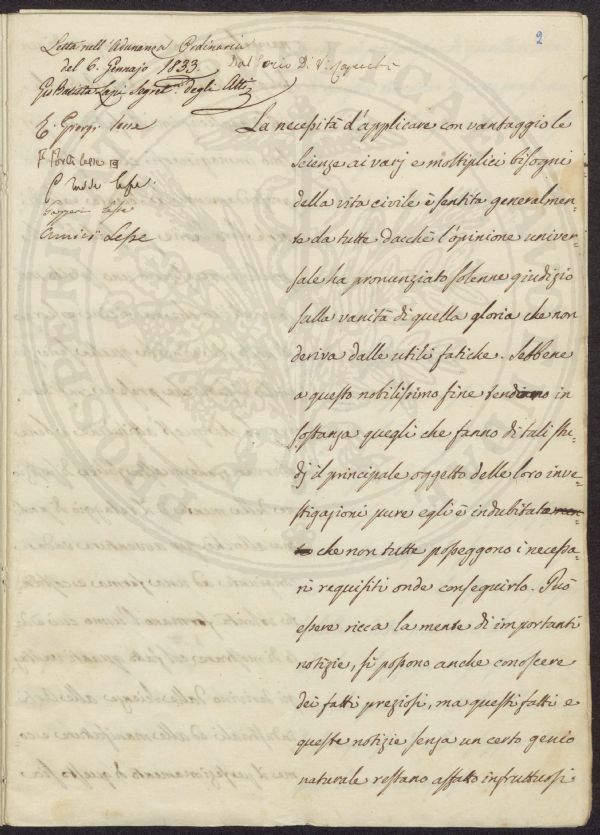 2
Letta nell'Adunanza Ordinaria
del 6. Gennajo 1833.
dal Socio
Gio Batista Lapi Segret.o degli Atti
E. Giorgi lesse
lesse
lesse
lesse
Amici Lesse
La necessità d'applicare con vantaggio le
scienze ai varj e moltiplici bisogni
della vita civile è sentita generalmen-
te da tutte dacchè l'opinione univer-
sale ha pronunziato solenne giudizio
sulla vanità di quella gloria che non
deriva dalle utili fatiche. Sebbene
a questo nobilissimo fine tendano in
sostanza quegli che fanno di tali stu-
dj il principale oggetto delle loro inve-
stigazioni pure egli è indubitatamen-
te che non tutte posseggono i necessa-
rj requisiti onde conseguirlo. Può
essere ricca la mente di importanti
notizie, si possono anche conoscere
dei fatti preziosi, ma questi fatti e
queste notizie senza un certo genio
naturale restano affatto infruttuosi